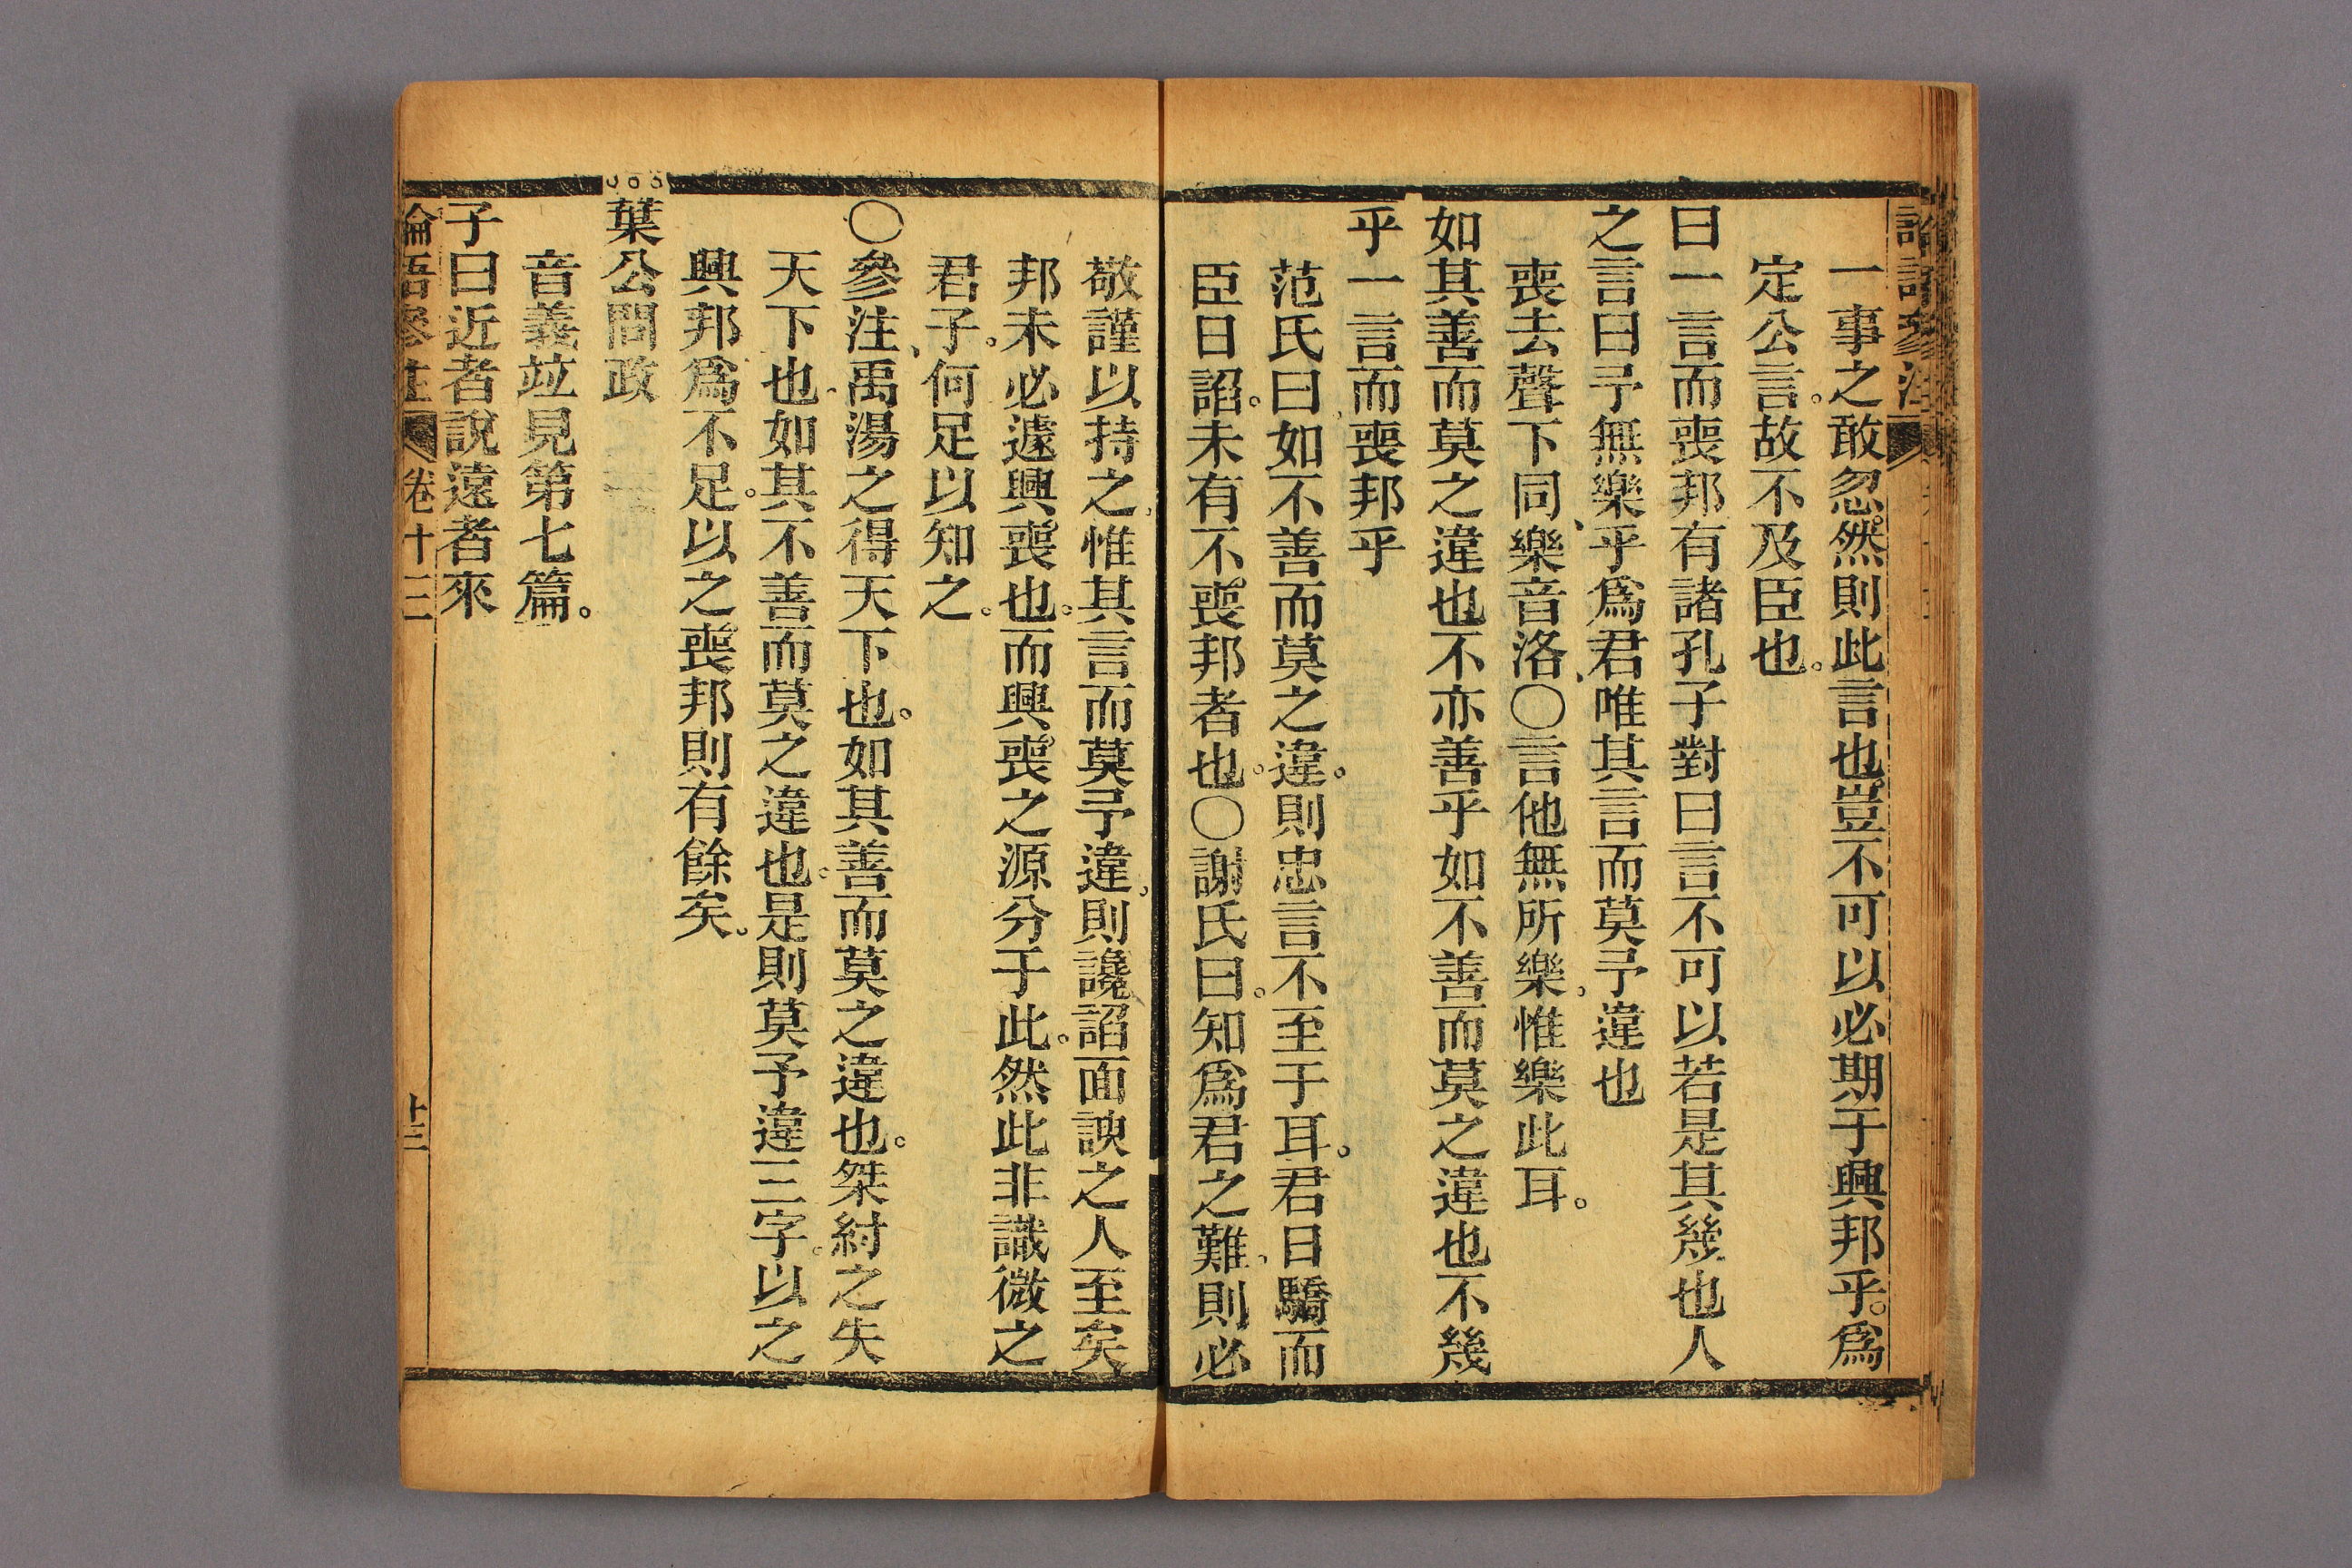 論語參注
一事之敢忽。然則此言也。豈不可以必期于興邦乎。爲
定公言。故不及臣也。
曰一言而喪邦有諸孔子對曰言不可以若是其幾也人
之言曰予無樂乎爲君唯其言而莫予違也
喪去聲下同、樂音洛、〇言他無所樂。惟樂此耳。
如其善而莫之違也不亦善乎如不善而莫之違也不幾
乎一言而喪邦乎
范氏曰、如不善而莫之違。則忠言不至于耳。君日驕而
臣日諂。未有不喪邦者也。〇謝氏曰。知爲君之難。則必
敬謹以持之、惟其言而莫予違。則讒諂面諛之人至矣
邦未必遽興喪也。而興喪之源分于此。然此非識微之
君子。何足以知之。
〇參注、禹湯之得天下也。如其善而莫之違也。桀紂之失
天下也。如其不善而莫之違也。是則莫予違三字。以之
興邦爲不足。以之喪邦則有餘矣。
葉公問政
音義竝見第七篇。
子曰近者說遠者來
論語參注 卷十三 十三